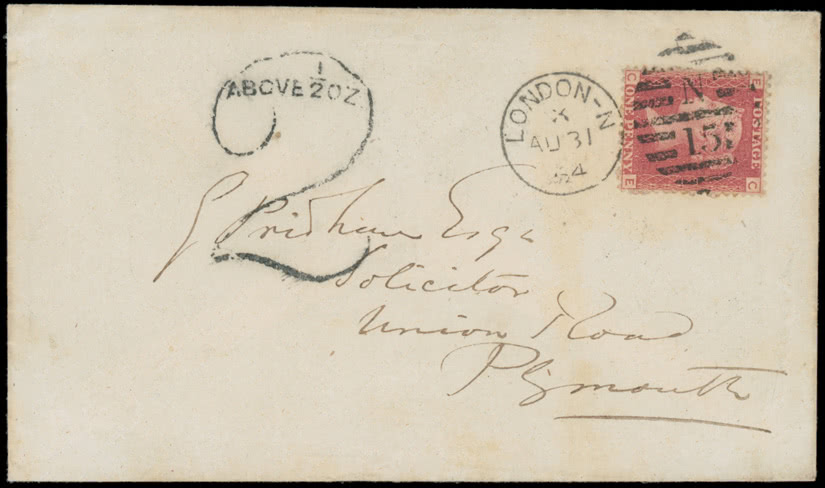 ABOVE 1/2 OZ.
2
LONDON-N
X
AU 31
64
N
15
E POSTAGE C
C ONE PENNY E
G Pridham Esqr
Solicitor
Union Road
Plymouth